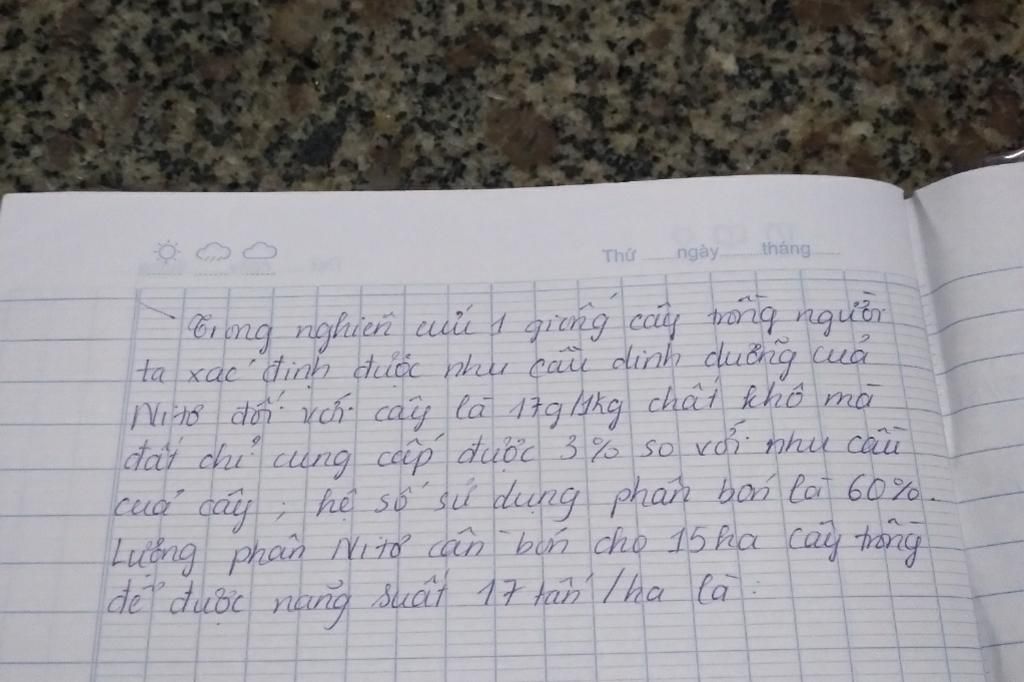 Thứ ngày tháng
Trong nghiên cứu 1 giống cây trồng người
ta xác định được nhu cầu dinh dưỡng của
Nitơ đối với cây là 17g/1kg chất khô mà
đất chỉ cung cấp được 3% so với nhu cầu
của cây; hệ số sử dụng phân bón là 60%.
Lượng phân Nitơ cần bón cho 15ha cây trồng
để được năng suất 17 tấn/ha là: